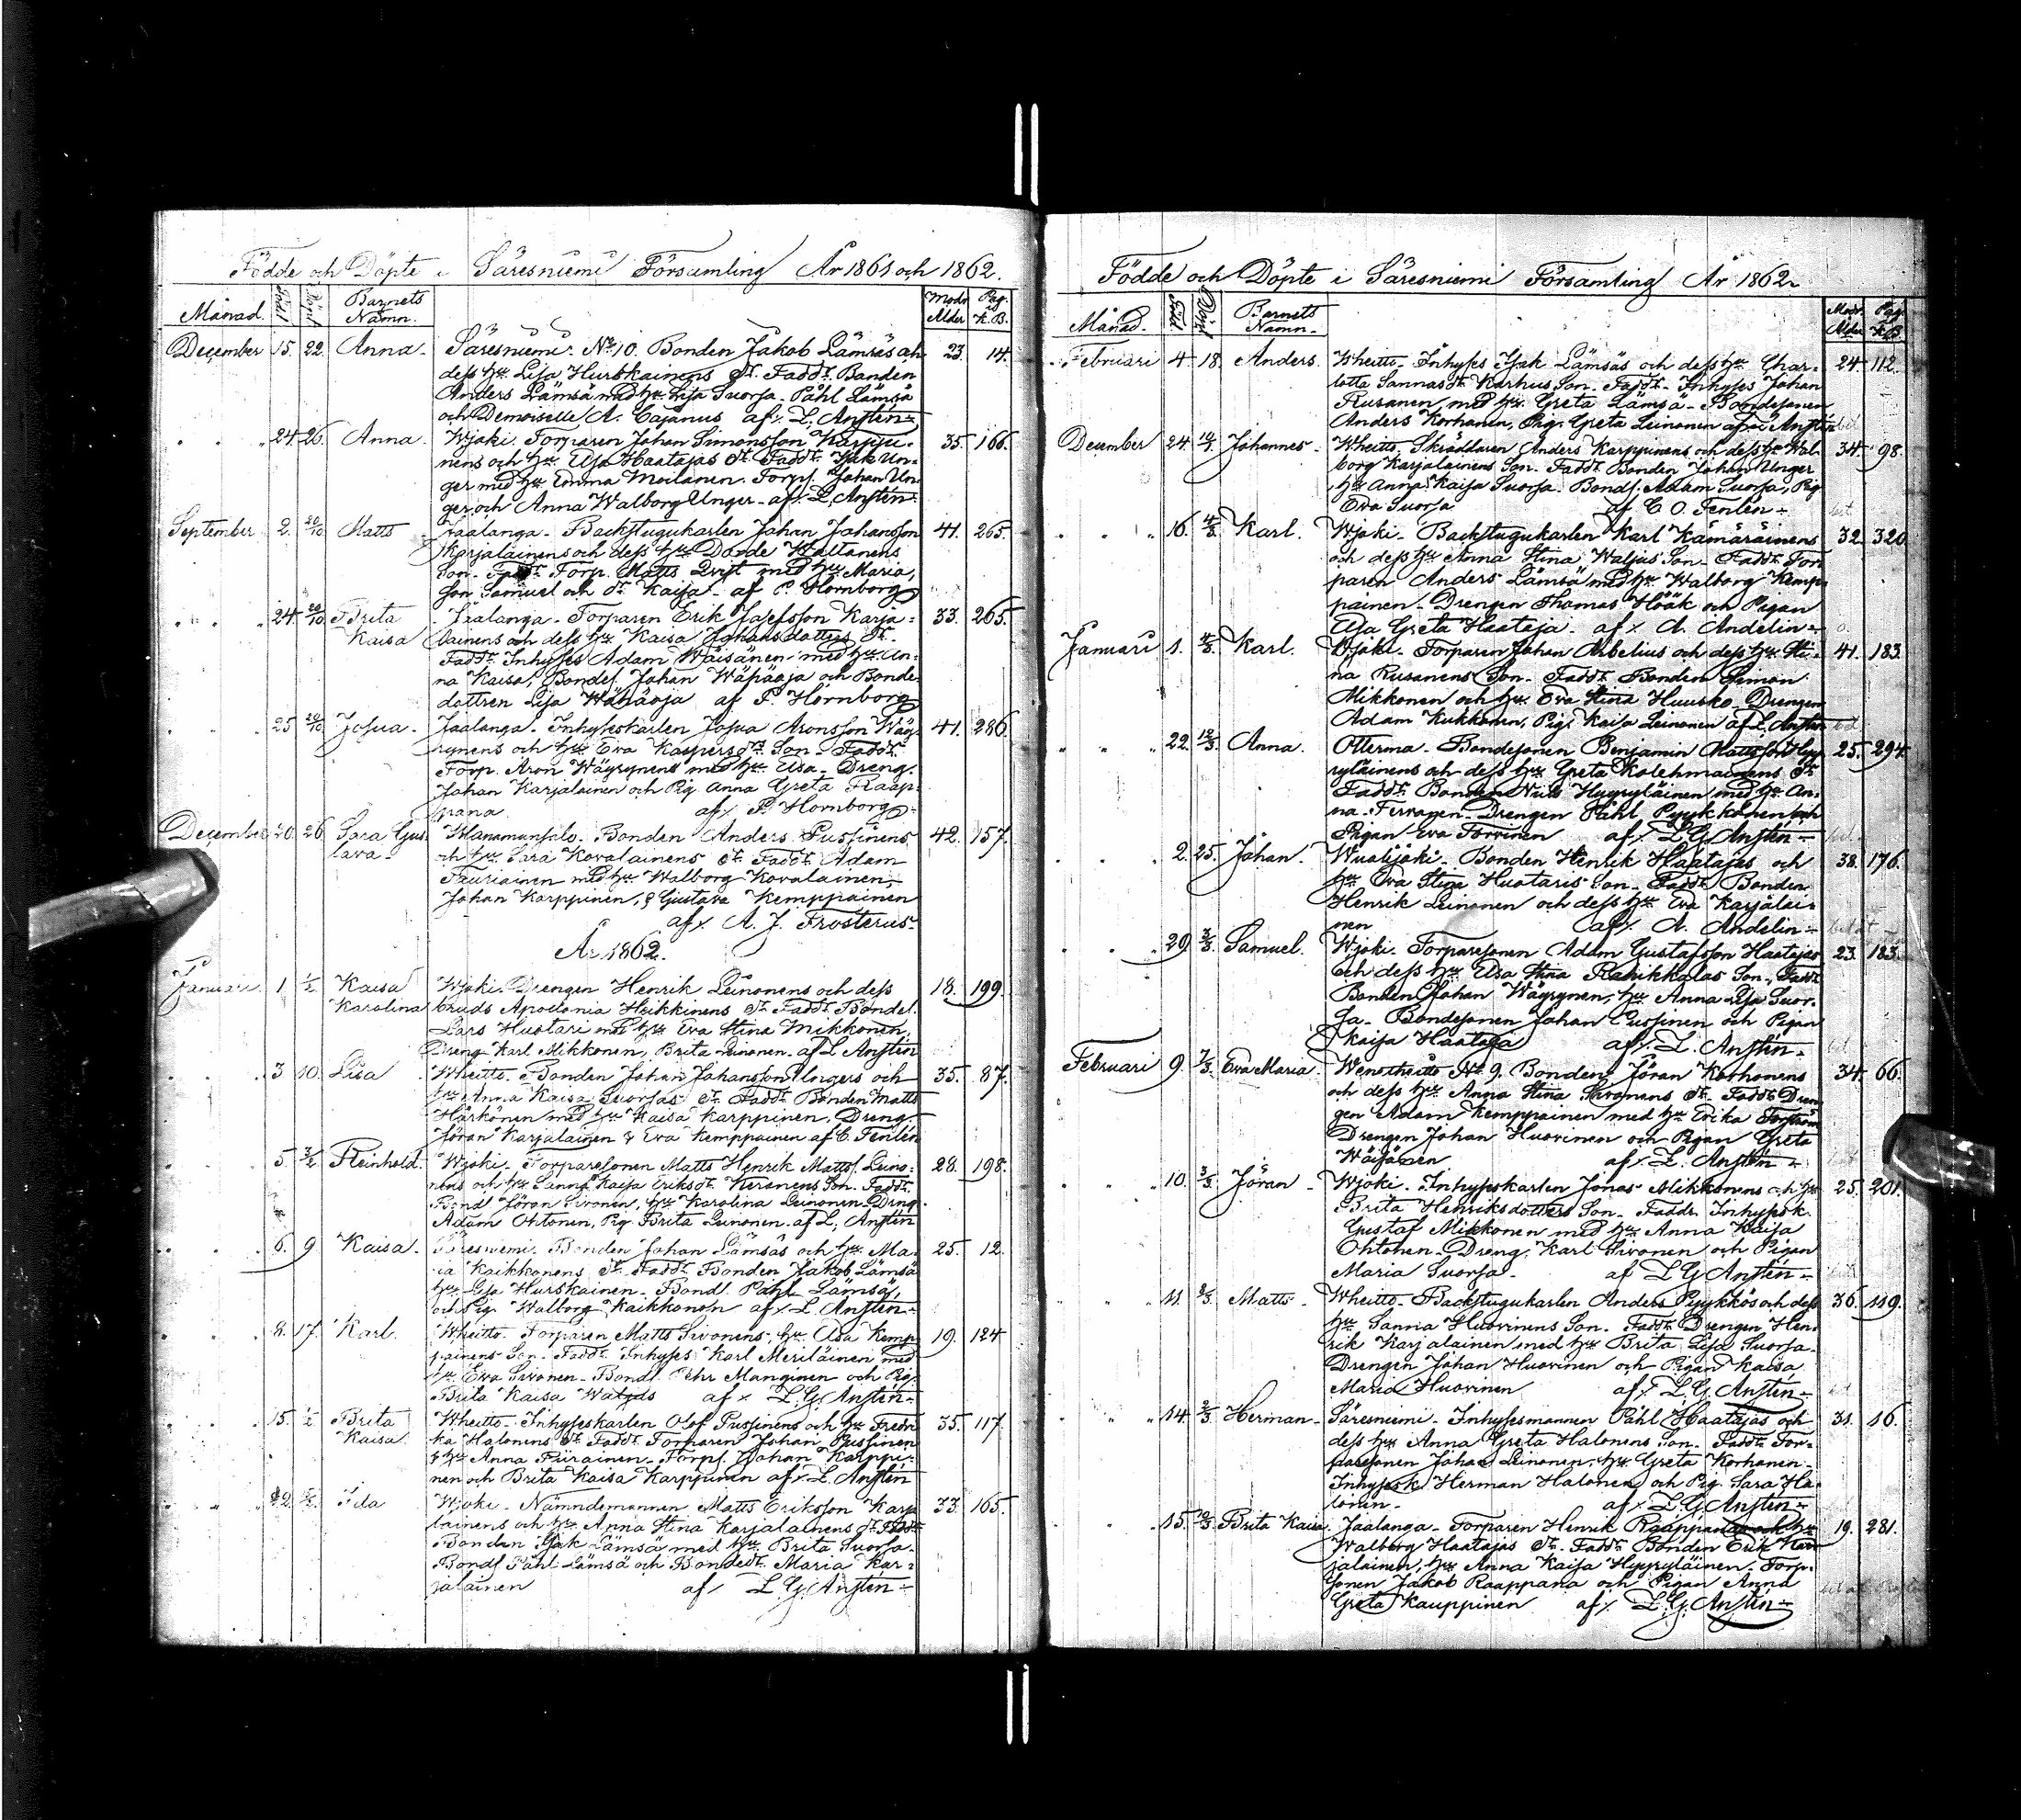 Födde och Döpte i Säresniemi Församling År 1861 och 1862.
Månad. Född Döpt Barnets Namn. Mods Ålder Pag. K.B.
December 15. 22. Anna. Säresniemi. No 10. Bonden Jakob Lämsäs och 23. 14.
dess hu Lisa Hurskainens dr. Faddr. Bonden
Anders Lämsä med hu Lisa Suorsa. Påhl Lämsä
och Demoiselle A. Cajanus af L. Anstén
24. 26. Anna. Wjoki. Torparen Johan Simonsson Karppi- 35. 166.
nens och hu Elsa Haatajas dr. Faddr. Isak Un-
ger med hu Emma Moilanen. Torps. Johan Un-
ger och Anna Walborg Unger. af L. Anstén
September 2. 20/10 Matts Jaalanga. Backstugukarlen Johan Johansson 41. 265.
Karjalainens och dess hu Darde Waltanens
Son. Faddr. Torp. Matts Qvist med hu Maria,
Son Samuel och dr. Kaisa. af P. Hornborg
24. 20/10 Brita Jaalanga. Torparen Erik Josefsson Karja- 33. 265.
Kaisa lainens och dess hu Kaisa Johansdotters dr.
Faddr. Inhyses Adam Wäisänen med hu An-
na Kaisa, Bondes. Johan Wäpäoja och Bonde-
dottren Lisa Wähäoja af P. Hornborg
25 20/10 Josua. Jaalanga. Inhyseskarlen Josua Aronsson Wäy- 41. 286.
rynens och hu Eva Kaspersdrs Son. Faddr.
Torp. Aron Wäyrynens med hu Elsa. Dreng.
Johan Karjalainen och Pig. Anna Greta Raap-
pana af P. Hornborg
December 20. 26 Sara Gus- Manamansalo. Bonden Anders Pussinens 42. 157.
tava och hu Sara Kovalainens dr. Faddr. Adam
Tauriainen med hu Walborg Kovalainen,
Johan Karppinen, & Gustava Kemppainen
af A. J. Frosterus
År 1862.
Januari 1. 1/2 Kaisa Wjoki. Drengen Henrik Leinonens och dess 18. 199.
Karolina bruds Apollonia Heikkinens dr. Faddr. Bondes.
Lars Huotari med hu Eva Stina Mikkonen,
Dreng Karl Mikkonen, Brita Leinonen. af L Anstén
3 10. Lisa Wheitto. Bonden Johan Johansson Ungers och 35. 87.
hu Anna Kaisa Suorsas dr. Faddr. Bonden Matts
Härkönen med hu Kaisa Karppinen, Dreng
Jöran Karjalainen & Eva Kemppainen af C. Fenlén
5. 3/2 Reinhold. Wjoki. Torparesonen Matts Henrik Matts. Leino- 28. 198.
nens och hu Sanna Kaisa Eriksdr. Keränens Son. Faddr.
Bond Jöran Sivonen, hu Karolina Leinonen. Dreng
Adam Ohtonen, Pig. Brita Leinonen. af L. Anstén
6. 9 Kaisa. Säresniemi. Bonden Johan Lämsäs och hu Ma- 25. 12.
ria Kaikkonens dr. Faddr. Bonden Jakob Lämsä
hu Lisa Hurskainen. Bonds. Påhl Lämsä,
och Pig. Walborg Kaikkonen af L. Anstén
8. 17. Karl. Wheitto. Torparen Matts Sivonens, hu Elsa Kemp- 19. 124.
painens Son. Faddr. Inhyses Karl Meriläinen med
hu Eva Sivonen. Bonds. Pehr Manginen och Pig.
Brita Kaisa Waljus af L. G. Anstén
15. 1/2 Brita Wheitto. Inhyseskarlen Olof Pussinens och hu Fredri- 35. 117.
Kaisa ka Halonens dr. Faddr. Torparen Johan Pussinen
& hu Anna Piirainen. Torps. Johan Karppi-
nen och Brita Kaisa Karppinen af L. Anstén
Ida Wjoki. Nämndemannen Matts Eriksson Karja- 33. 165.
lainens och hu Anna Stina Karjalainens dr. Faddr.
Bonden Isak Lämsä med hu Brita Suorsa.
Bonds Påhl Lämsä och Bondedr. Maria Kar-
jalainen af L. G. Anstén
Födde och Döpte i Säresniemi Församling År 1862.
Månad. Född Döpt Barnets Namn. Modr. Ålder Pag. K.B.
Februari 4. 18. Anders. Wheitto. Inhyses Isak Lämsäs och dess hu Char- 24. 112.
lotta Sannasdr. Karhus Son. Faddr. Inhyses Johan
Rusanen med hu Greta Lämsä. Bondesonen
Anders Korhonen, Pig. Greta Leinonen af Anstén
December 24. Johannes. Wheitto. Skräddaren Anders Karppinens och dess hu Wal- 34. 98.
borg Karjalainens Son. Faddr. Bonden Johan Unger
hu Anna Kaisa Suorsa. Bonds. Adam Suorsa, Pig
Eva Suorsa af C. O. Fenlén
16. 4/3 Karl. Wjoki. Backstugukarlen Karl Kämäräinens 32. 320
och dess hu Anna Stina Waljus Son. Faddr. Tor-
paren Anders Lämsä med hu Walborg Kemp-
painen. Drengen Thomas Höök och Pigan
Elsa Greta Haataja. af A. Andelin
Januari 1. 4/3 Karl. Wjoki. Torparen Johan Arbelius och dess hu Sti- 41. 183.
na Rusanens Son. Faddr. Bonden Simon
Mikkonen och hu Eva Stina Huusko. Drengen
Adam Kukkonen, Pig. Kaisa Leinonen af L. Anstén
22. 12/3 Anna. Otterma. Bondesonen Benjamin Mattsson Hyy- 25. 294.
ryläinens och dess hu Greta Kolehmainens dr.
Faddr. Bonden Nills Hyyryläinen med hu An-
na Tervonen. Drengen Påhl Pyykkönen och
Pigan Eva Torvinen af L. G. Anstén
2. 25. Johan. Wuolijoki. Bonden Henrik Haatajas och 38. 176.
hu Eva Stina Huotaris Son. Faddr. Bonden
Henrik Leinonen och dess hu Eva Karjalai-
nen af A. Andelin
29. 3/3 Samuel. Wjoki. Torparesonen Adam Gustafsson Haatajas 23. 183.
och dess hu Elsa Stina Rahikkalas Son. Faddr.
Bonden Johan Wäyrynen, hu Anna Lisa Suor-
sa. Bondesonen Johan Pussinen och Pigan
Kaisa Haataja af L. Anstén
Februari 9. 7/3. Eva Maria. Wenetheitto No 9. Bonden Jöran Korhonens 34. 66.
och dess hu Anna Stina Sivonens dr. Faddr. Dren-
gen Adam Kemppainen med hu Erika Torström
Drengen Johan Huovinen och Pigan Greta
Wäisänen af L. Anstén
10. 3/3 Jöran. Wjoki. Inhyseskarlen Jonas Mikkonens och hu 25. 201.
Brita Henriksdotters Son. Faddr. Inhysesk.
Gustaf Mikkonen med hu Anna Kaisa
Ohtonen. Dreng. Karl Sivonen och Pigan
Maria Suorsa. af L G Anstén
11. Matts. Wheitto. Backstugukarlen Anders Pyykkös och dess 36. 119.
hu Sanna Huovinens Son. Faddr. Drengen Hen-
rik Karjalainen med hu Brita Lisa Suorsa.
Drengen Johan Huovinen och Pigan Kaisa
Maria Huovinen af L. G. Anstén
14. 2/3 Herman. Säresniemi. Inhysesmannen Påhl Haatajas och 31. 16.
dess hu Anna Greta Halonens Son. Faddr. Tor-
paresonen Johan Leinonen, hu Greta Korhonen.
Inhysesk. Herman Halonen och Pig. Sara Ha-
lonen. af L. G. Anstén
15. Brita Kaisa Jaalanga. Torparen Henrik Raappanas och hu 19. 281.
Walborg Haatajas dr. Faddr. Bonden Erik Kar-
jalainen, hu Anna Kaisa Hyyryläinen. Torp.
sonen Jakob Raappana och Pigan Anna
Greta Kauppinen af L. G. Anstén